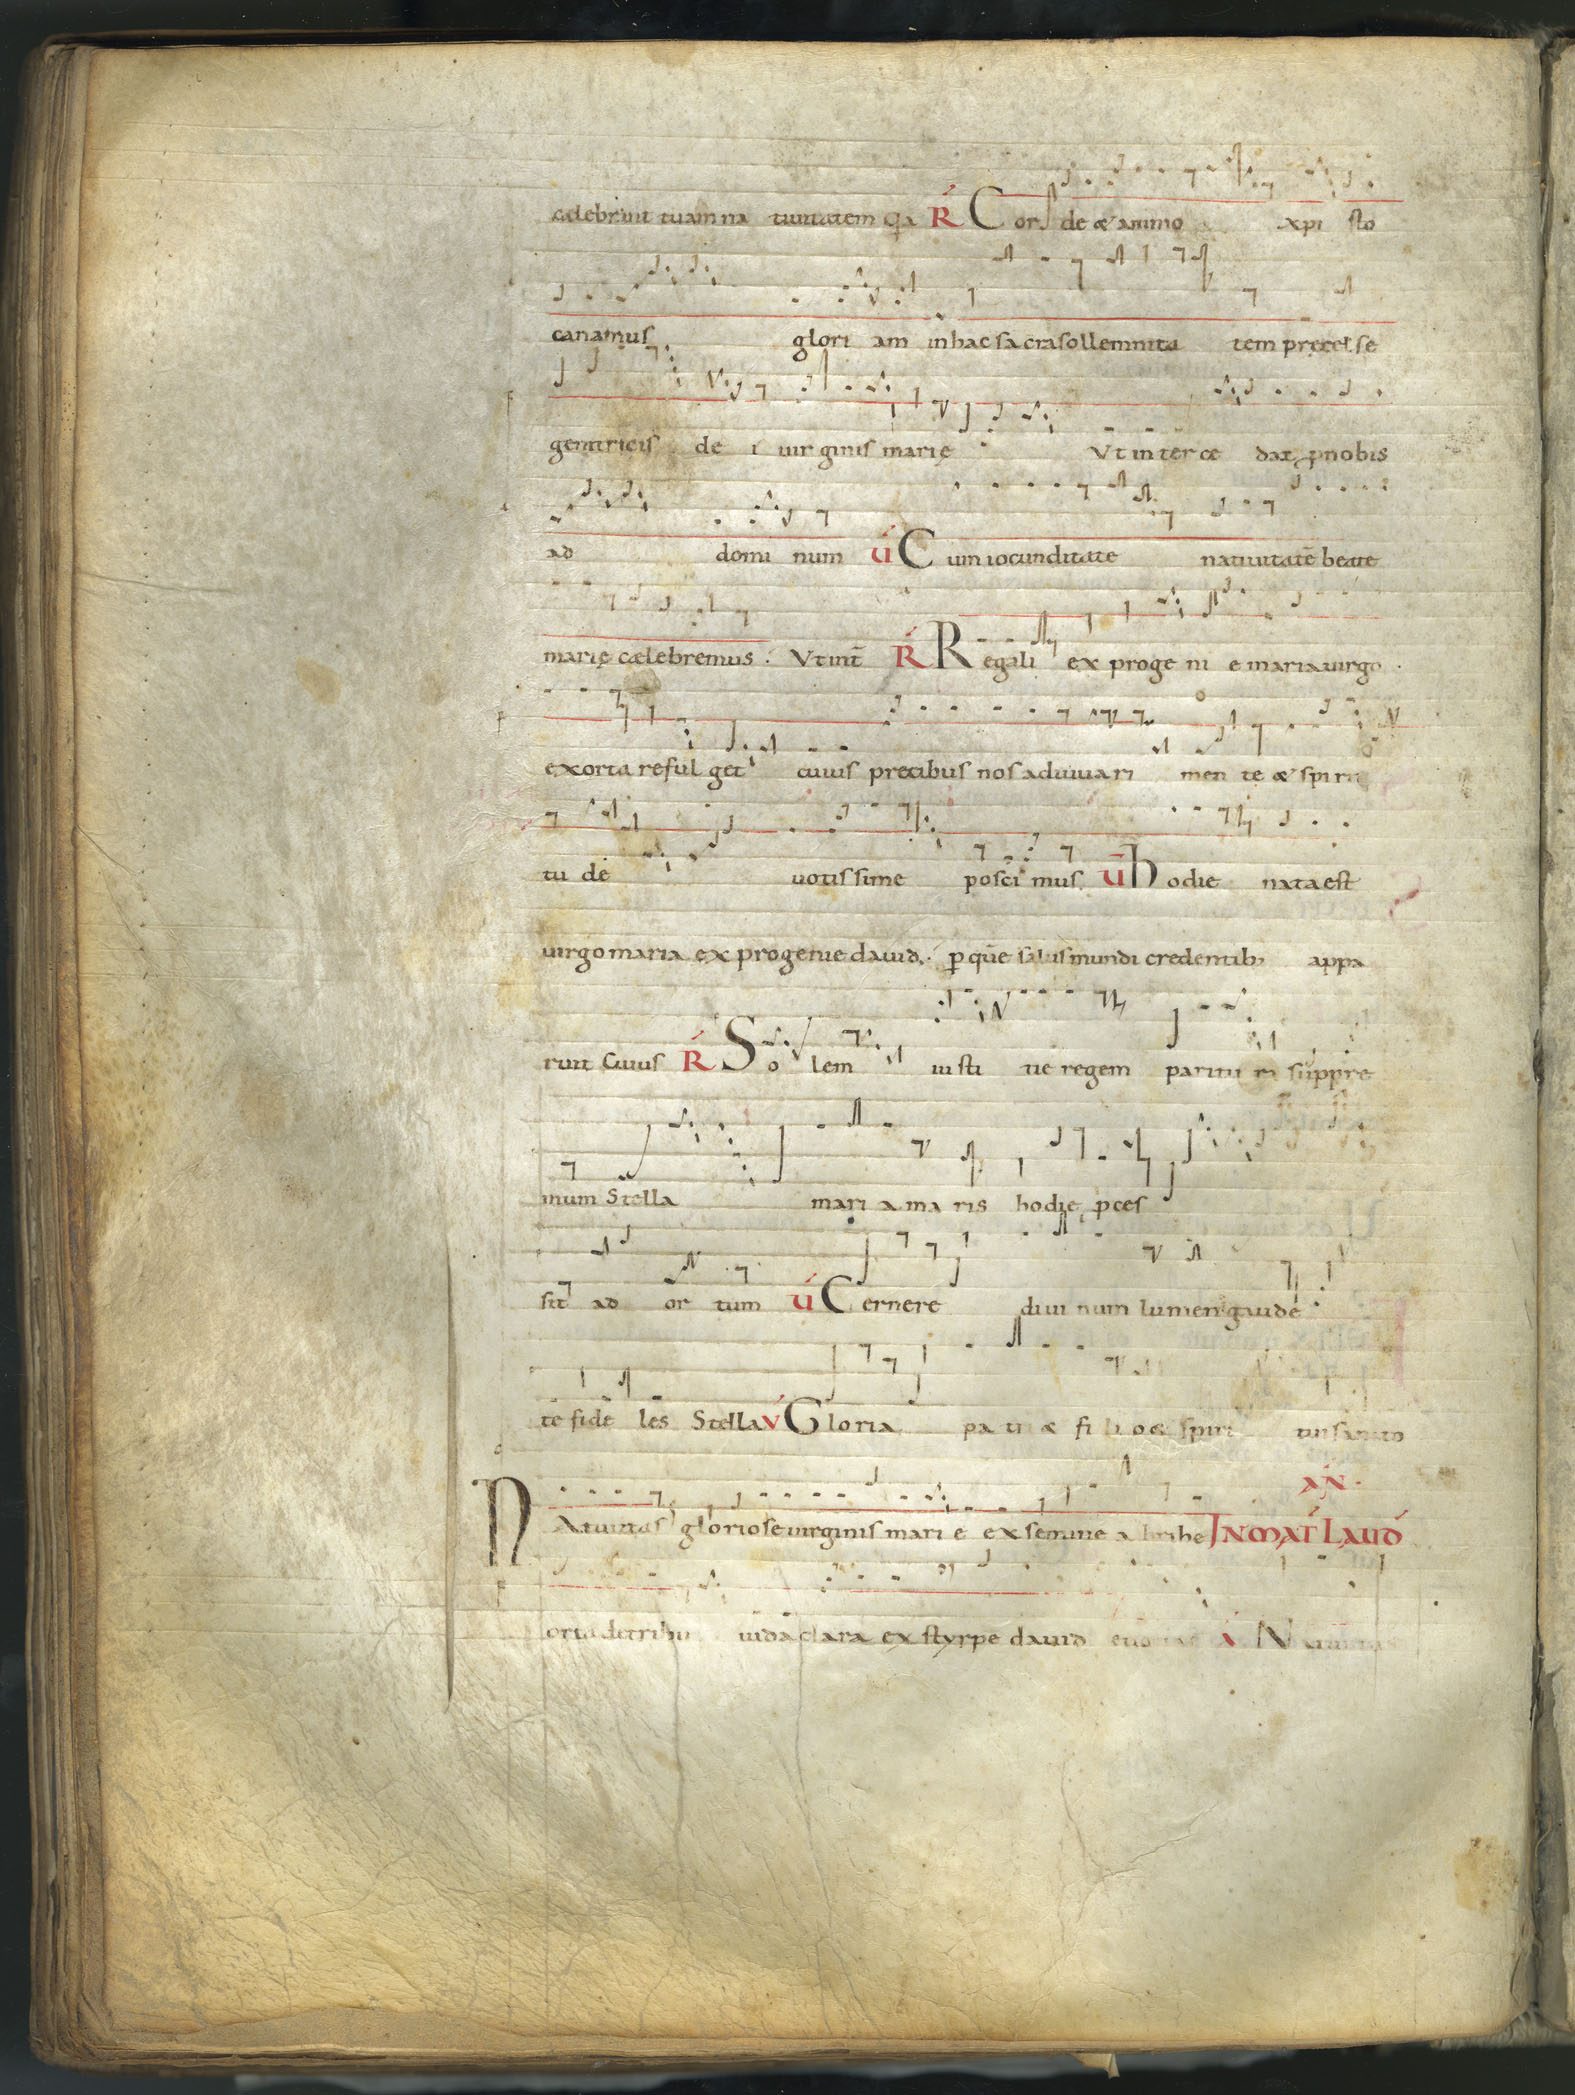 celebrant tuam na tiuitatem q̄a R̃ Corde & animo xpi sto
canamus glori am in hac sa cra sollemnita tem precelse
genitricis de i uir ginis marię Vt inter ce dat p nobis
ad domi num V́ Cum iocunditate natiuitatē beate
marię cælebremus . Vt int̄ R̃ Regali ex proge ni e maria uirgo .
exorta reful get cuius precibus nos adiuuari men te & spiri
tu de uotissime posci mus V̄ hodie nata est
uirgo maria ex progenie dauid . p quē salus mundi credentib; appa
ruit Cuius R̃ So lem iusti tie regem paritu ra suppre
mum Stella mari a ma ris hodie pces
sit ad or tum V́ Cernere diui num lumen gaude
te fide les Stella V́ Gloria pa tri & fi li o & spiri tui sancto
AN
NAtiuitas gloriose uirginis mari e ex semine a brahe IN MAT LAUD
orta de tribu iuda clara ex styrpe dauid A Natiuitas